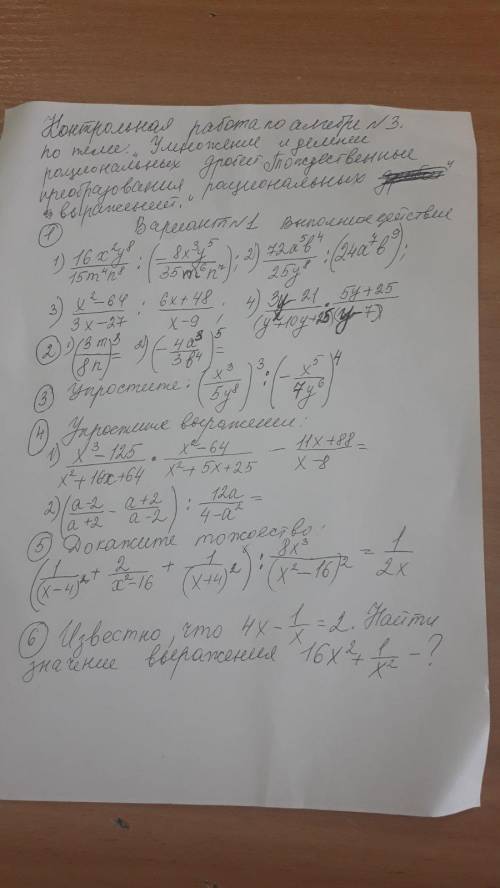 Контрольная работа по алгебре №3.
по теме „Умножение и деление
рациональных дробей. Тождественные
преобразования рациональных
выражений."
① Вариант №1 Выполное действие
1) 16x²y⁸/15m⁴n⁸ : (-8x³y⁵/35m⁶n⁷); 2) 72a⁵b⁴/25y⁸ : (24a⁷b⁹);
3) x²-64/3x-27 : 6x+48/x-9; 4) 3y-21/(y²+10y+25) · 5y+25/(y-7)
② 1) (3m/8n)³= 2) (-4a³/3b⁴)⁵=
③ Упростите: (x³/5y⁸)³ : (-x⁵/7y⁶)⁴
④ Упростите выражении:
1) x³-125/x²+16x+64 · x²-64/x²+5x+25 - 11x+88/x-8=
2) (a-2/a+2 - a+2/a-2) : 12a/4-a²=
⑤ Докажите тожество:
(1/(x-4)² + 2/x²-16 + 1/(x+4)²) : 8x³/(x²-16)² = 1/2x
⑥ Известно, что 4x-1/x=2. Найти
значение выражения 16x²+1/x² -?